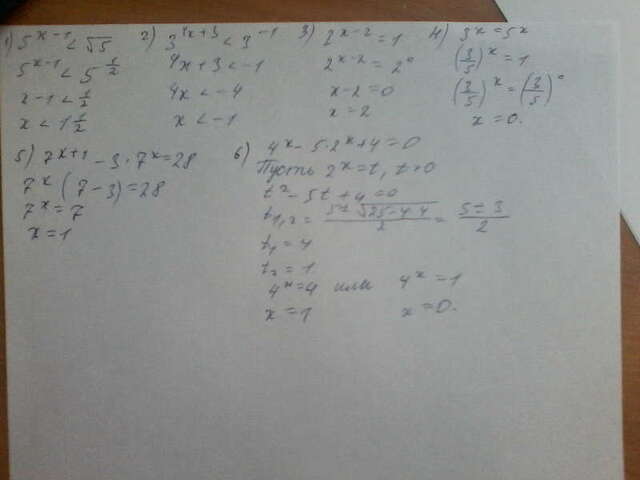 1) 5^(x-1) < √5
5^(x-1) < 5^(1/2)
x-1 < 1/2
x < 1 1/2
2) 3^(4x+3) < 3^(-1)
4x+3 < -1
4x < -4
x < -1
3) 2^(x-2) = 1
2^(x-2) = 2^0
x-2 = 0
x = 2
4) 3^x = 5^x
(3/5)^x = 1
(3/5)^x = (3/5)^0
x = 0.
5) 7^(x+1) - 3·7^x = 28
7^x (7-3) = 28
7^x = 7
x = 1
6) 4^x - 5·2^x + 4 = 0
Пусть 2^x = t, t>0
t^2 - 5t + 4 = 0
t1,2 = (5±√(25-4·4))/2 = (5±3)/2
t1 = 4
t2 = 1
4^x = 4 или 4^x = 1
x = 1 x = 0.